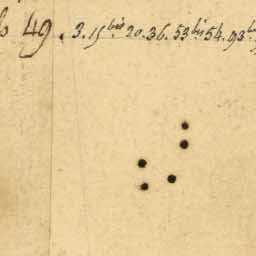 49. 3. 15 bis. 20. 36. 53 bis 54. 93